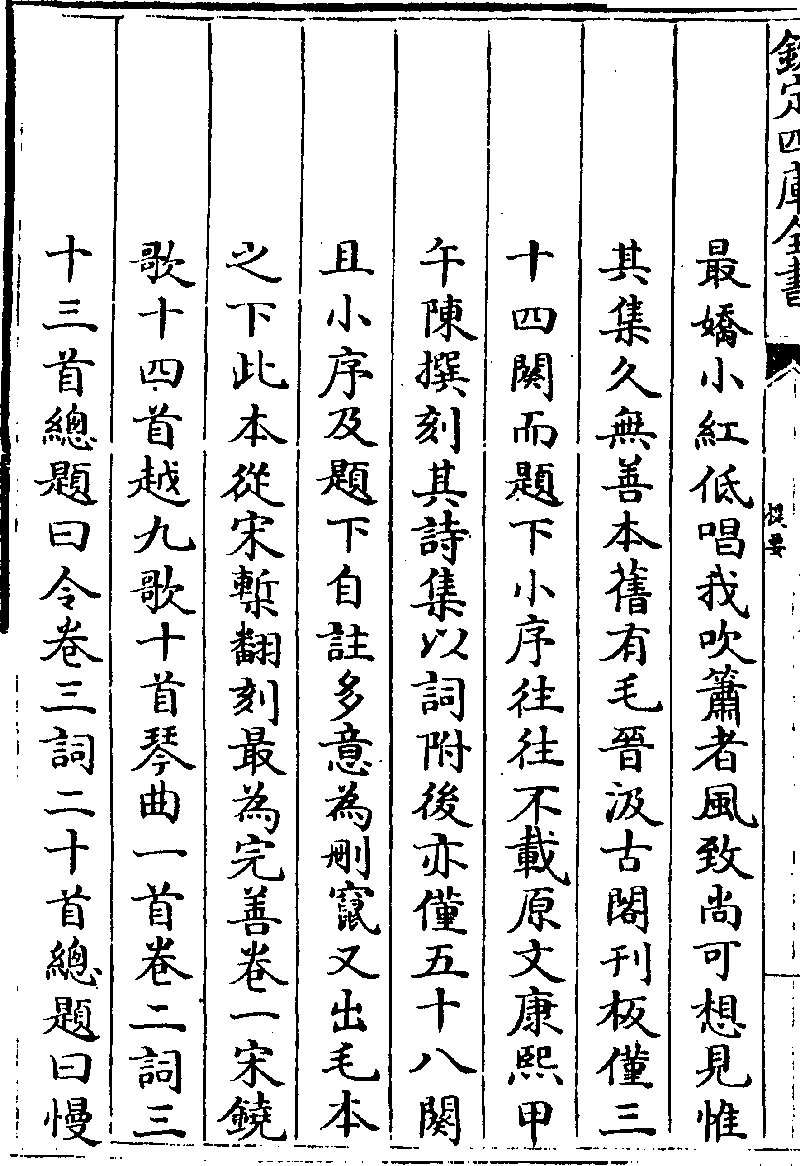 欽定四庫全書
提要
最嬌小紅低唱我吹簫者風致尚可想見惟
其集久無善本舊有毛晉汲古閣刊板僅三
十四闋而題下小序往往不載原文康熙甲
午陳撰刻其詩集以詞附後亦僅五十八闋
且小序及題下自註多意為刪竄又出毛本
之下此本從宋槧翻刻最為完善卷一宋鐃
歌十四首越九歌十首琴曲一首卷二詞三
十三首總題曰令卷三詞二十首總題曰慢